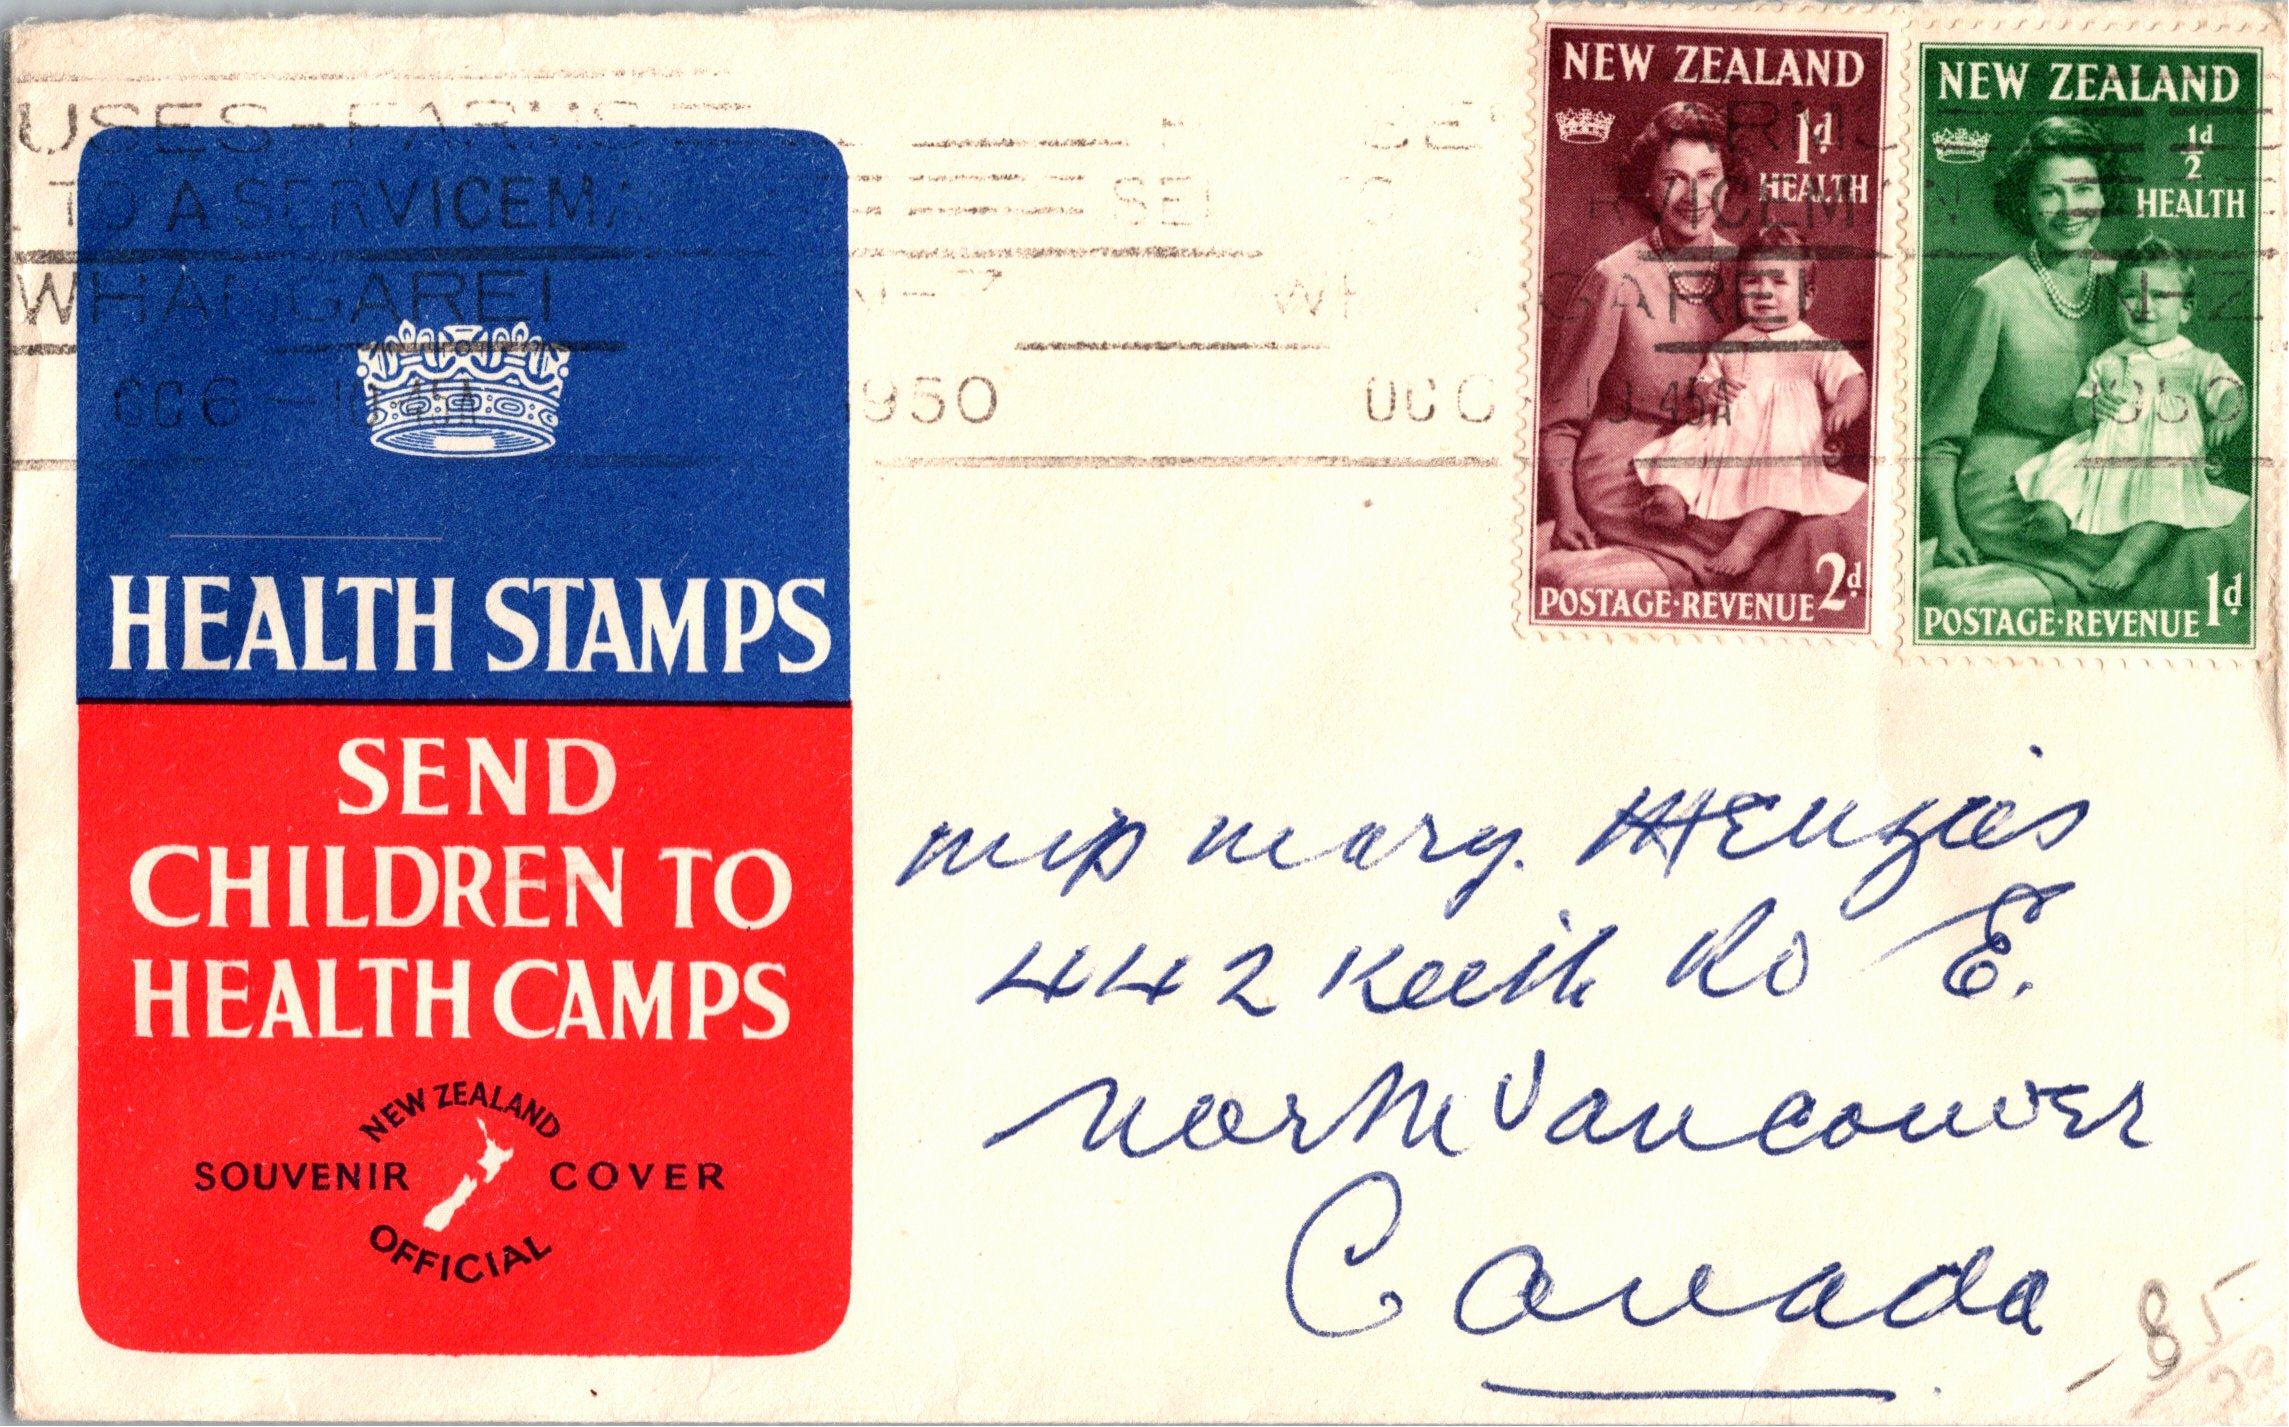 USES-FARMS
TO A SERVICEMA
WHANGAREI
N-Z
OC 6 - 10 45A
1950
ARMS
VICEM N
GAREI
N-Z
- 10 45A
1950
NEW ZEALAND
1d
HEALTH
POSTAGE·REVENUE 2d
NEW ZEALAND
½d
HEALTH
POSTAGE·REVENUE 1d
HEALTH STAMPS
SEND
CHILDREN TO
HEALTH CAMPS
NEW ZEALAND
SOUVENIR COVER
OFFICIAL
Miss Mary. Menzies
442 Keith Rd E.
North Vancouver
Canada
85